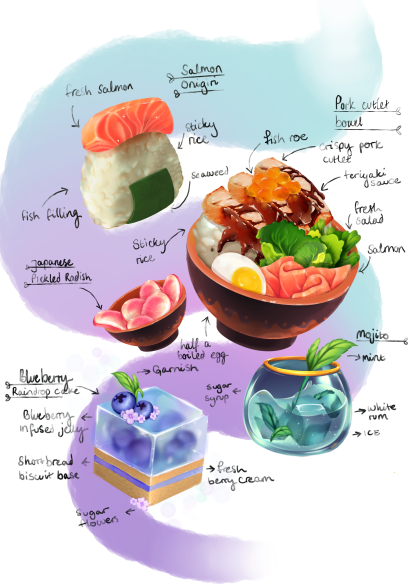 Salmon
Onigiri
fresh salmon
sticky
rice
seaweed
fish filling
Pork cutlet
bowl
fish roe
crispy pork
cutlet
teriyaki
sauce
fresh
salad
Salmon
Sticky
rice
half a
boiled egg
Japanese
Pickled Radish
Mojito
mint
sugar
syrup
white
rum
ICE
Blueberry
Raindrop cake
Garnish
Blueberry
infused jelly
Shortbread
biscuit base
fresh
berry cream
sugar
flowers